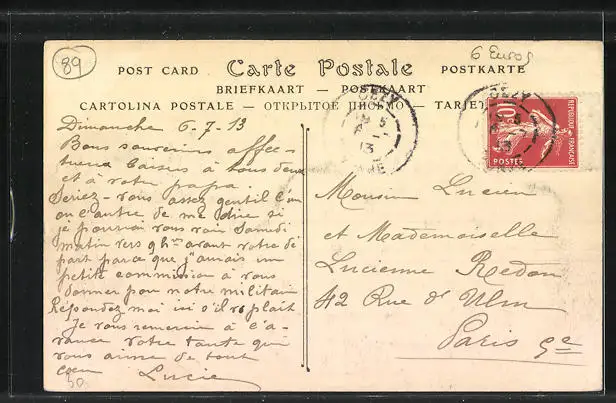 89
6 Euros
POST CARD Carte Postale POSTKARTE
BRIEFKAART — POSTKAART
CARTOLINA POSTALE — ОТКРЫТОЕ ПИСЬМО — TARJET
Dimanche 6-7-13
Bons souvenirs affec-
tueux baisers à tous deux
et à votre papa.
Seriez-vous assez gentil l'un
ou l'autre de me dire si
je pourrai vous voir Samedi
matin vers 9h avant votre dé
part parce que j'aurais une
petite commission à vous
donner pour notre militaire
Répondez moi ici s'il vs plaît
Je vous remercie à l'a-
vance votre tante qui
vous aime de tout
coeur Lucie
50
Monsieur Lucien
et Mademoiselle
Lucienne Redon
42 Rue d'Ulm
Paris 5e
REPUBLIQUE FRANÇAISE
10
POSTES
13